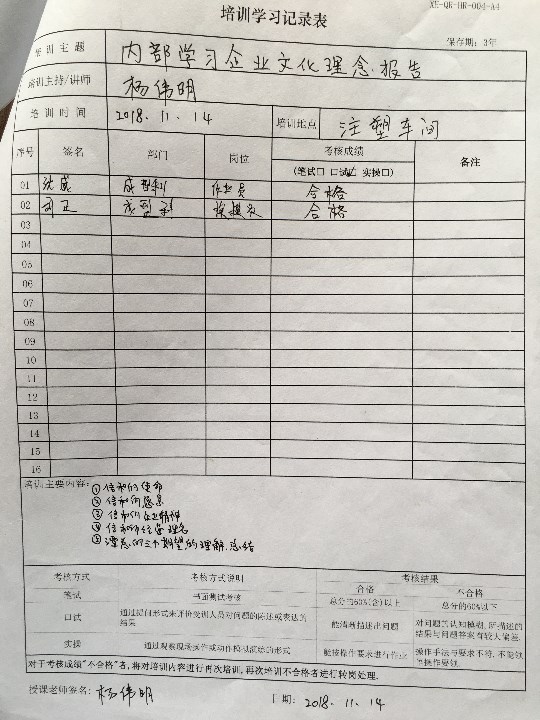 XE-QR-HR-004-A4
培训学习记录表
保存期：3年
培训主题 内部学习企业文化理念报告
培训主持/讲师 杨伟明
培训时间 2018.11.14 培训地点 注塑车间
序号 签名 部门 岗位 考核成绩 备注
(笔试□ 口试☑ 实操□)
01 沈成 成型科 作业员 合格
02 刘正 成型科 换模员 合格
03
04
05
06
07
08
09
10
11
12
13
14
15
16
培训主要内容：
①信和的使命
②信和的愿景
③信和的企业精神
④信和的经营理念
⑤ 的三个期望的理解.总结
考核方式 考核方式说明 考核结果
合格 不合格
笔试 书面测试考核 总分的60%(含)以上 总分的60%以下
口试 通过提问形式来评价受训人员对问题的陈述或表达的结果 能清晰描述出问题 对问题的认知模糊，所描述的结果与问题答案有较大偏差.
实操 通过观察现场操作或动作模拟演练的形式 能按操作要求进行作业 操作手法与要求不符，不能领悟操作要领.
对于考核成绩"不合格"者，将对培训内容进行再次培训，再次培训不合格者进行转岗处理.
授课老师签名：杨伟明 日期：2018.11.14